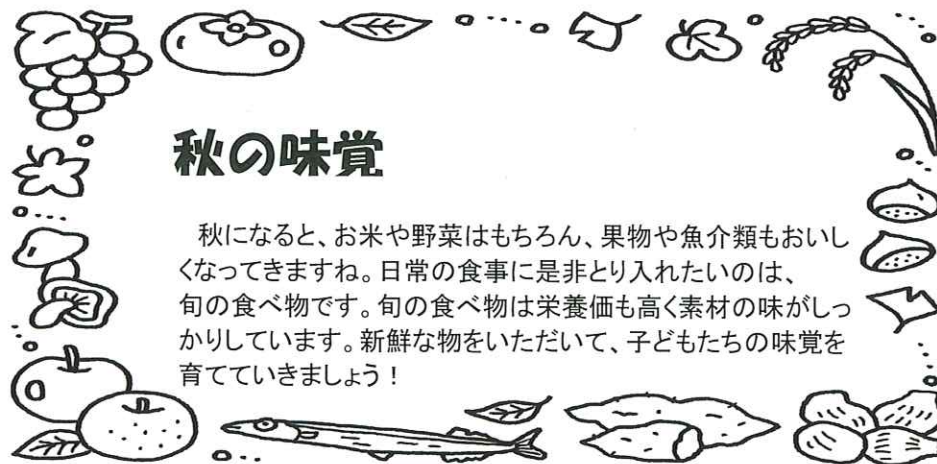 秋の味覚
秋になると、お米や野菜はもちろん、果物や魚介類もおいし
くなってきますね。日常の食事に是非とり入れたいのは、
旬の食べ物です。旬の食べ物は栄養価も高く素材の味がしっ
かりしています。新鮮な物をいただいて、子どもたちの味覚を
育てていきましょう！